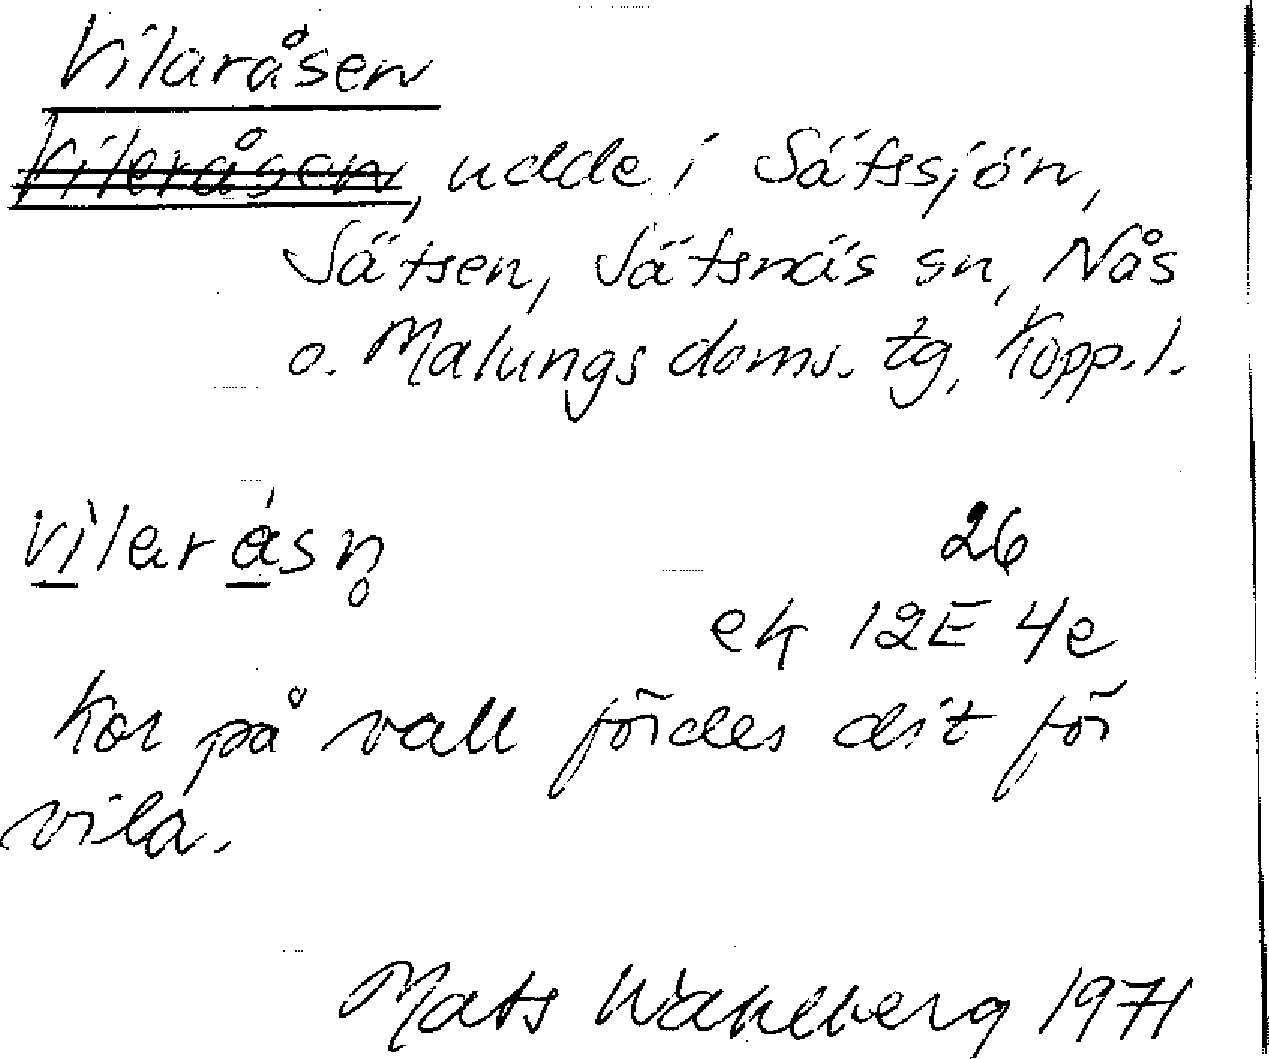 Vilaråsen
Vileråsen, udde i Sätssjön,
Sätsen, Sätsnäs sn, Nås
o. Malungs doms. tg, Kopp. l.
vìlaråsn̥
26
ek 12E 4e
Kor på vall fördes dit för
vila.
Mats Wahlberg 1971